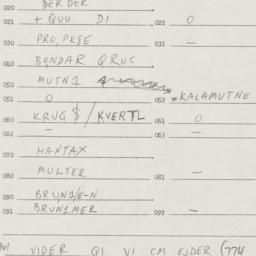 020 DER DER
021 + QUU DI 022 O
030 PRO, PKSE 031 —
040 BONDAR QRUS
050 MUTN1
051 O 052 = KALAMUTNE
060 KRUG $ / KVERTL 061 O
062 — 063 —
070 HANTAX
080 MULTER 081 —
090 BRUN1/E-N
091 BRUN1MER 092 —
VIDER Q1 V1 CM EJDER (774